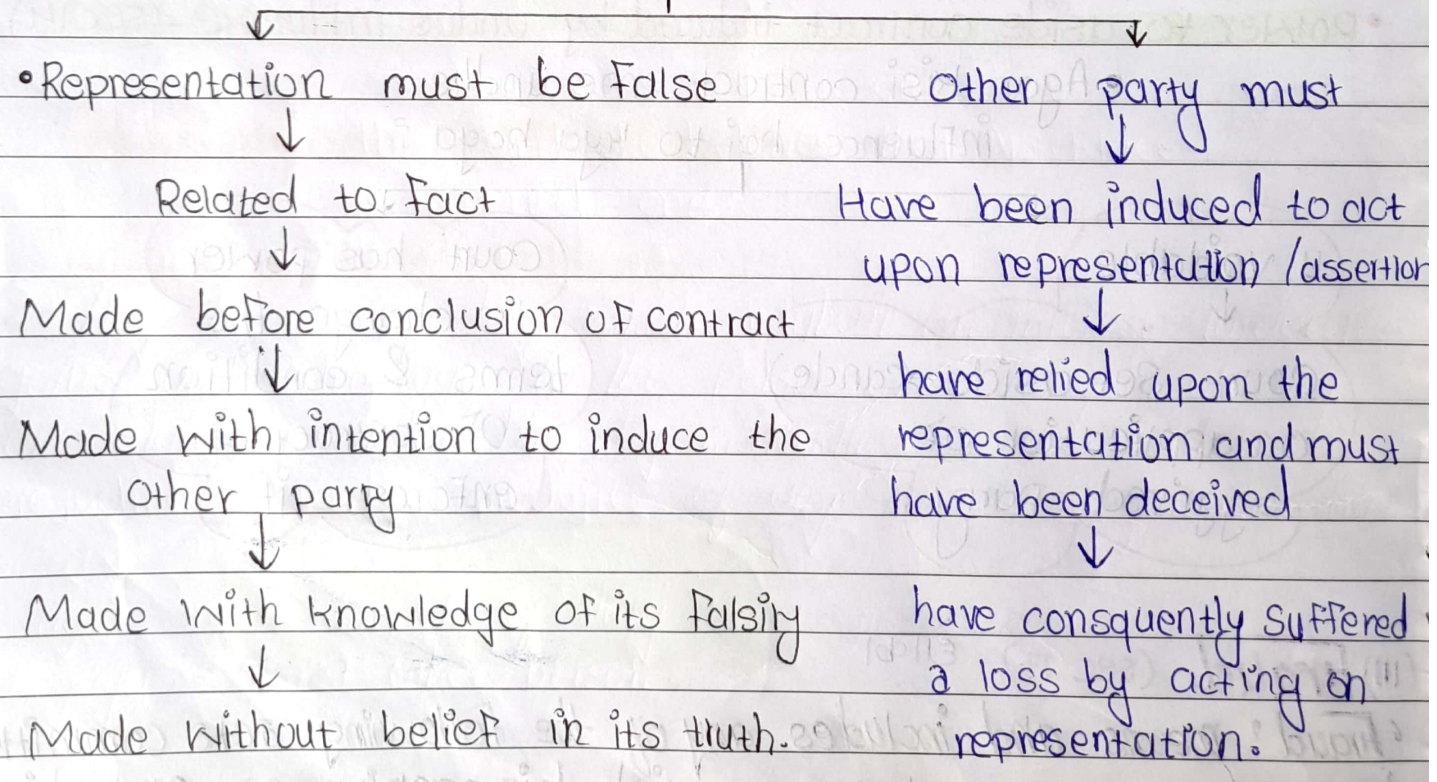 •Representation must be false
↓
Related to fact
↓
Made before conclusion of contract
↓
Made with intention to induce the
other party
↓
Made with knowledge of its falsiy
↓
Made without belief in its truth.
Other party must
↓
Have been induced to act
upon representation /assertion
↓
have relied upon the
representation and must
have been deceived
↓
have consquently suffered
a loss by acting on
representation.